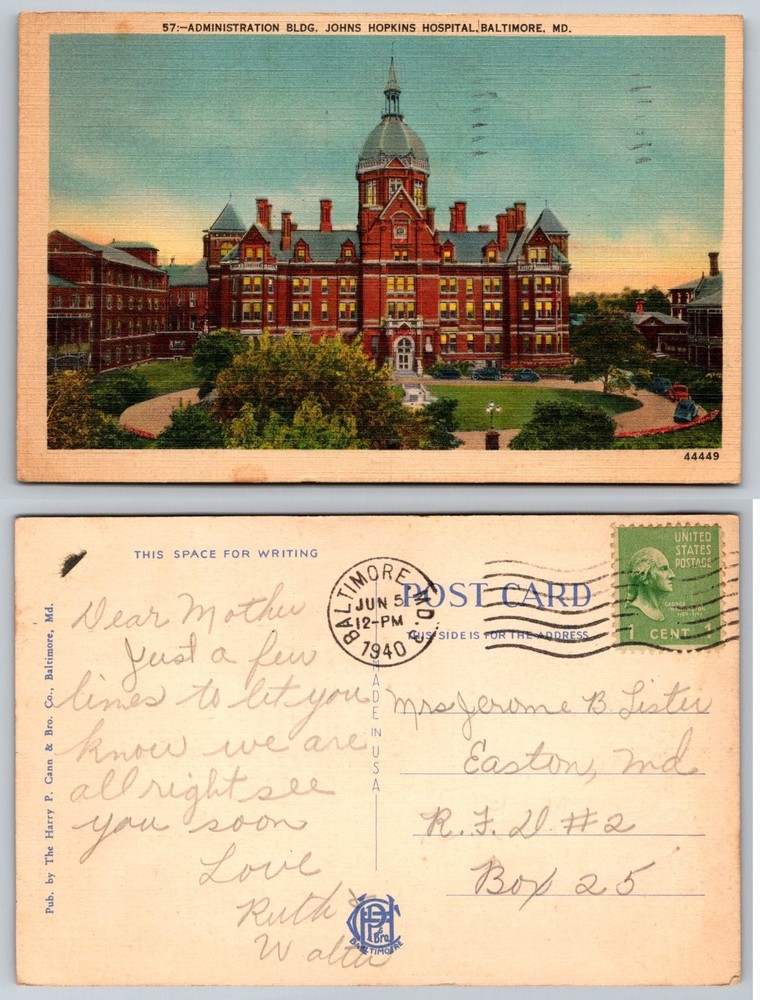 57:—ADMINISTRATION BLDG. JOHNS HOPKINS HOSPITAL, BALTIMORE, MD.
44449
THIS SPACE FOR WRITING
POST CARD
THIS SIDE IS FOR THE ADDRESS
BALTIMORE, MD.
JUN 5
12-PM
1940
UNITED
STATES
POSTAGE
GEORGE
WASHINGTON
1 CENT 1
Pub. by The Harry P. Cann & Bro. Co., Baltimore, Md.
MADE IN USA
Dear Mother
Just a few
lines to let you
know we are
all right see
you soon
Love
Ruth &
Walter
Mrs Jerome B. Lister
Easton, Md
R.F.D. #2
Box 25
Bro
BALTIMORE